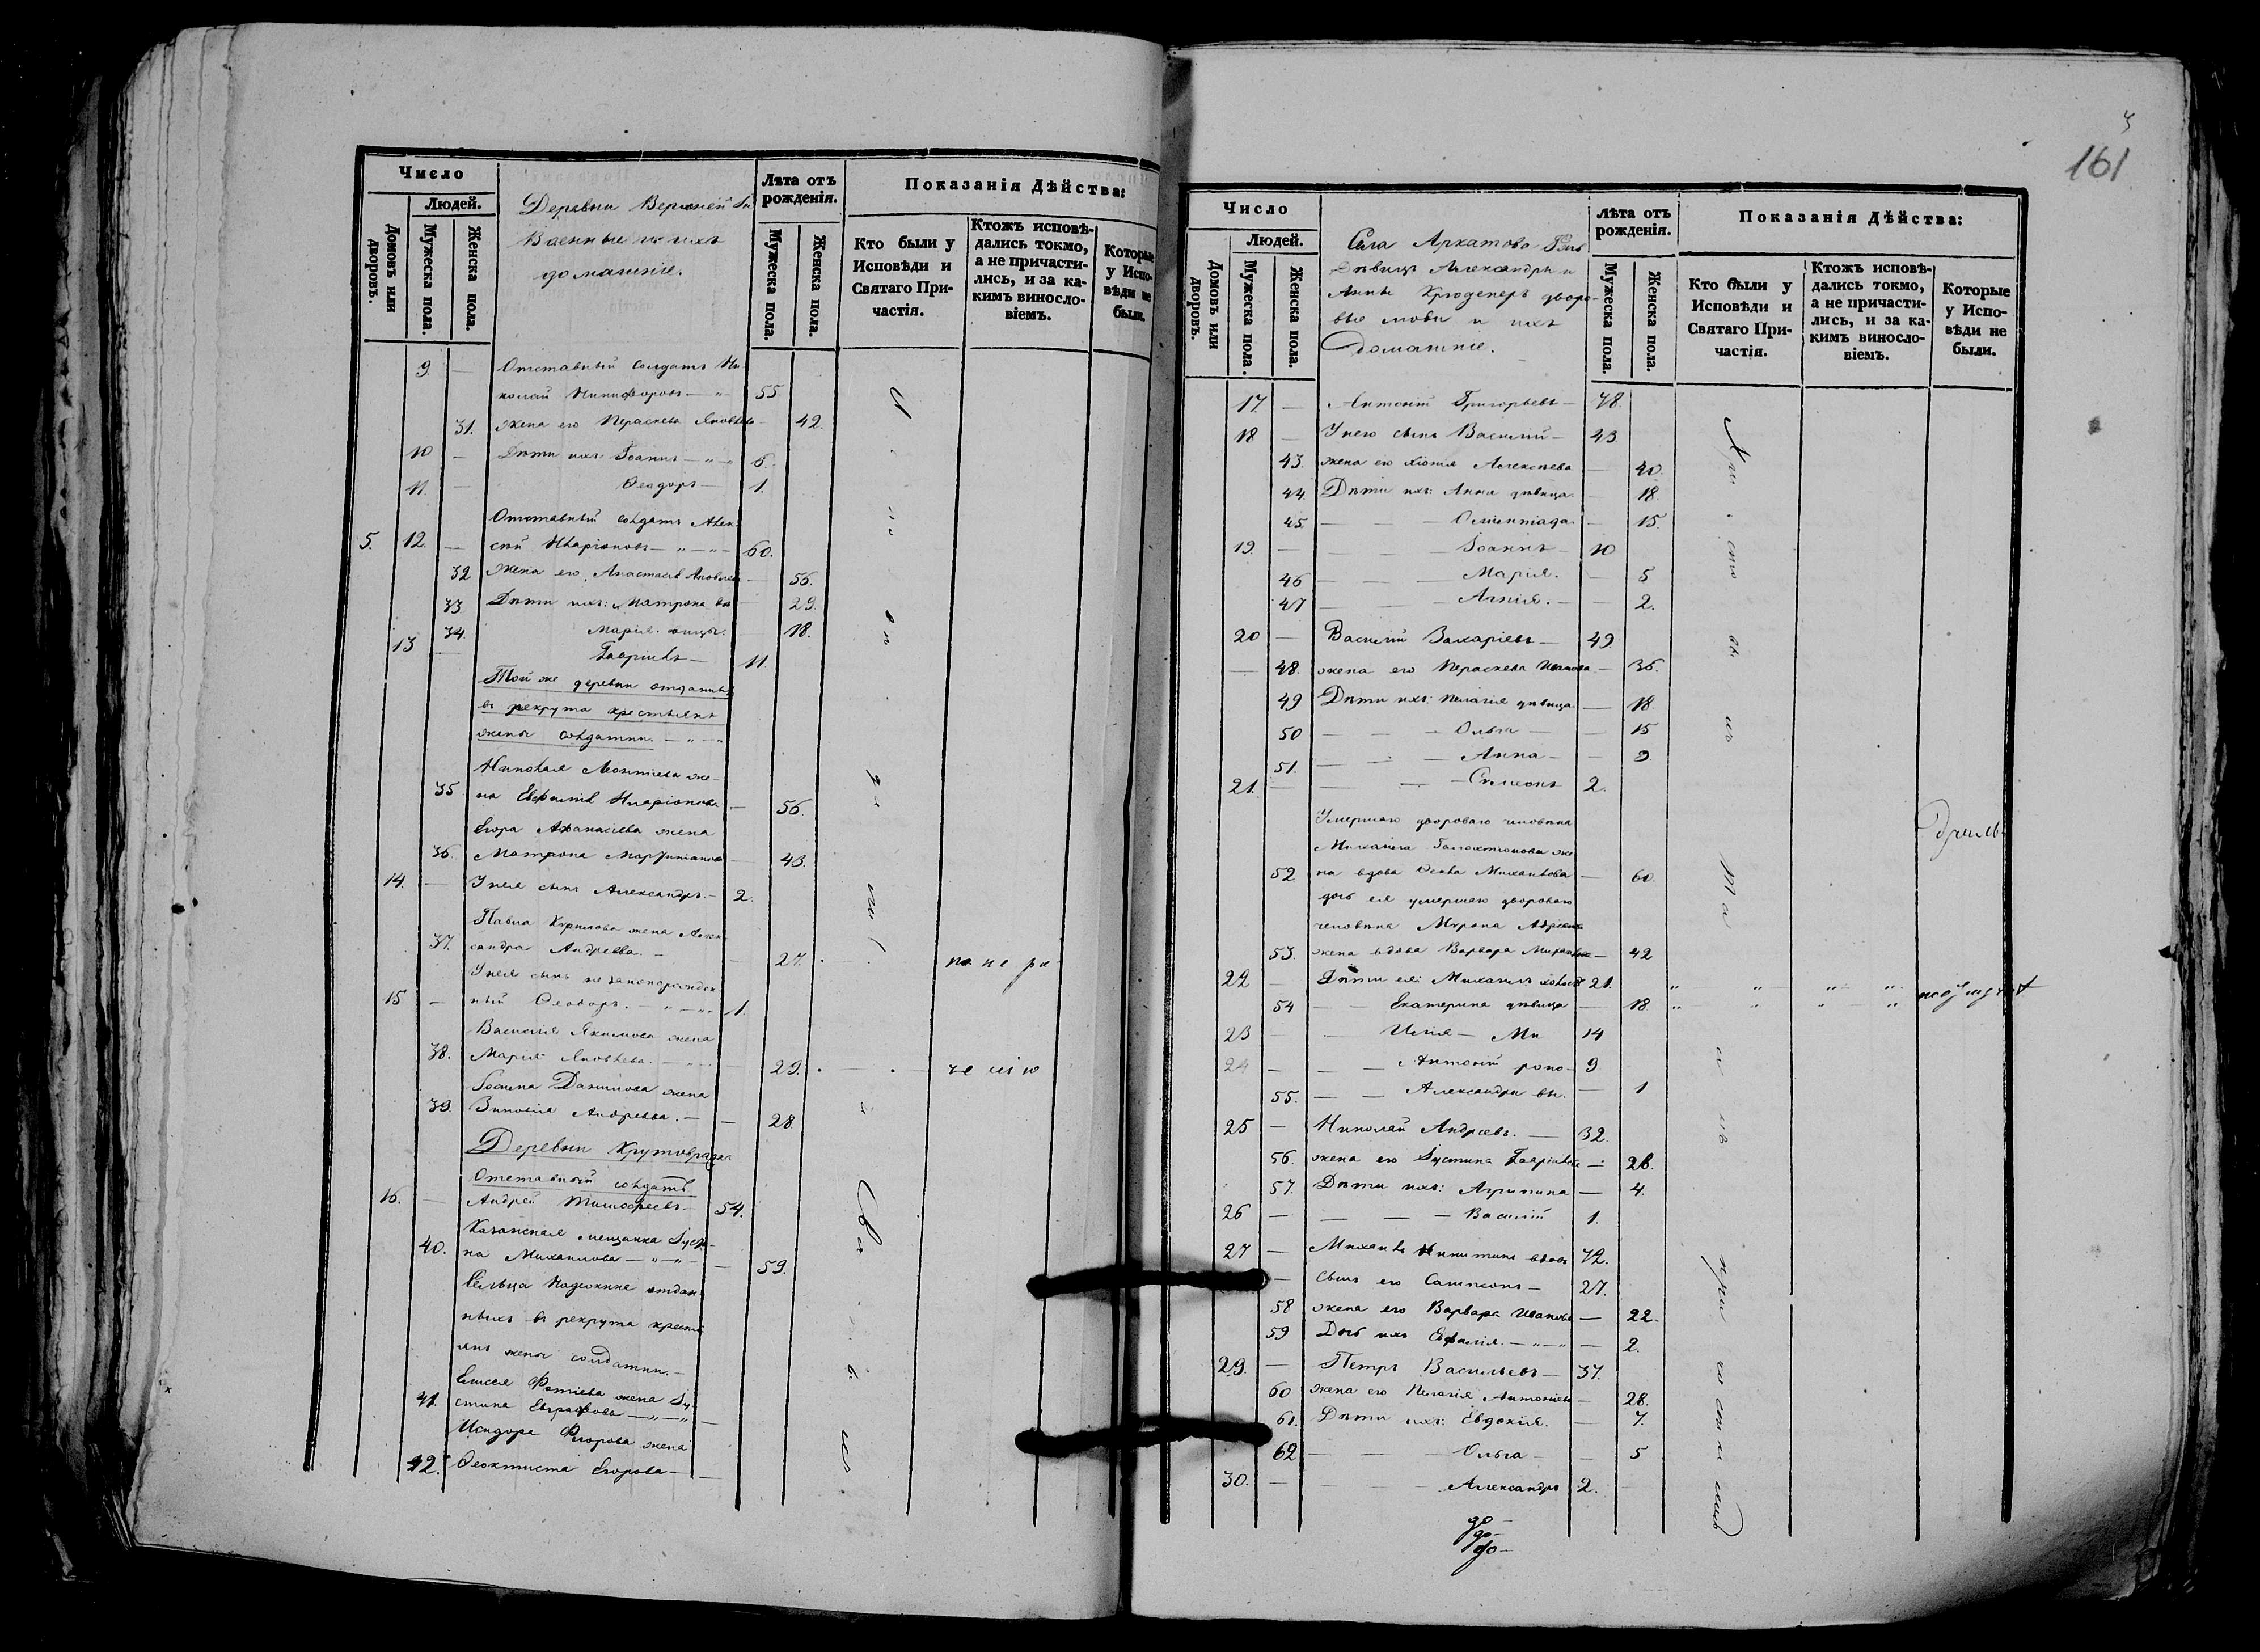 Число
Людей.
Домовъ или дворовъ.
Мужеска пола.
Женска пола.
Деревни Верхней
Военные и ихъ
домашніе.
Лѣта отъ рожденія.
Мужеска пола.
Женска пола.
Показанія Дѣйства:
Кто были у Исповѣди и Святаго Причастія.
Ктожъ исповѣдались токмо, а не причастились, и за какимъ винословіемъ.
Которые у Исповѣди не были.
9. — Отставный солдатъ Ни-
колай Никифоровъ — 55.
31. жена его Параскева Яковлева — 42.
10 — Дѣти ихъ: Іоаннъ — 6.
11. — Ѳеодоръ — 1.
Отставный солдатъ Алек-
5. 12. — сѣй Иларіоновъ — 60.
32 Жена его Анастасія Яковлева — 56.
33 Дѣти ихъ: Матрона — 29.
34. Марія — 18.
13 Гавріилъ — 11.
Той же деревни отданныхъ
въ рекрута крестьянъ
жены солдатки.
Николая Леонтіева же-
35. на Евфимія Иларіонова — 56.
Егора Аѳанасіева жена
36. Матрона Мартиніанова — 43.
14. — У нея сынъ Александръ — 2.
Павла Кирилова жена Алек-
37. сандра Андреева. — 27.
У нея сынъ незаконорожден-
15 — ный Ѳеодоръ. — 1.
Василія Якимова жена
38. Марія Яковлева. — 29.
Іоанна Данилова жена
39. Зиновія Андреева. — 28
Деревни Крутовражка
Отставный солдатъ
16. — Андрей Тимоѳеевъ — 54.
Казанская мещанка Іусти-
40. на Михаилова — 59.
Сельца Надежина отдан-
ныхъ въ рекрута крестья-
янъ жены солдатки. —
Елисея Фотіева жена Іу-
41. стина Евграфова —
Исидора Флорова жена
42. Ѳеоктиста Егорова —
161
Число
Людей.
Домовъ или дворовъ.
Мужеска пола.
Женска пола.
Села Архатова
дѣвицъ Александры и
Анны Крюденеръ дворо-
вые люди и ихъ
Домашніе.
Лѣта отъ рожденія.
Мужеска пола.
Женска пола.
Показанія Дѣйства:
Кто были у Исповѣди и Святаго Причастія.
Ктожъ исповѣдались токмо, а не причастились, и за какимъ винословіемъ.
Которые у Исповѣди не были.
17. — Антоній Григорьевъ — 78.
18 — У него сынъ Василій — 43
43. жена его Хіонія Алексеева — 40.
44. Дѣти ихъ: Анна дѣвица — 18.
45. — Олимпіада — 15.
19. — Іоаннъ — 10
46 — Марія. — 5
47 — Агнія. — 2.
20 — Василій Захаріевъ — 49
48. жена его Параскева Иванова — 36.
49 Дѣти ихъ: Пелагія дѣвица — 18.
50 — Ольга — 15
51. — Анна — 9
21. — Симеонъ 2.
Умершаго двороваго человѣка
Михаила Галактіонова же-
52 на вдова Михаилова — 60.
дочь ея умершаго двороваго
человѣка Мирона
53. жена вдова Варвара Михаилова — 42
22 — Дѣти ея: Михаилъ холостъ 21.
54 — Екатерина дѣвица — 18
23 — Илія — 14
24 — Антоній — 9
55. — Александра — 1
25 — Николай Андреевъ. — 32.
56. жена его Іустина Гавріилова — 28.
57. Дѣти ихъ: Агрипина — 4.
26 — Василій 1.
27 — Михаилъ Никитинъ вдовъ 72.
— сынъ его Сампсонъ — 27.
58 жена его Варвара Иванова — 22.
59 Дочь ихъ Евфимія. — 2.
29. — Петръ Васильевъ — 37.
60 жена его Пелагія Антоніева — 28.
61. Дѣти ихъ: Евдокія. — 7.
62 — Ольга — 5
30. — Александръ 2.